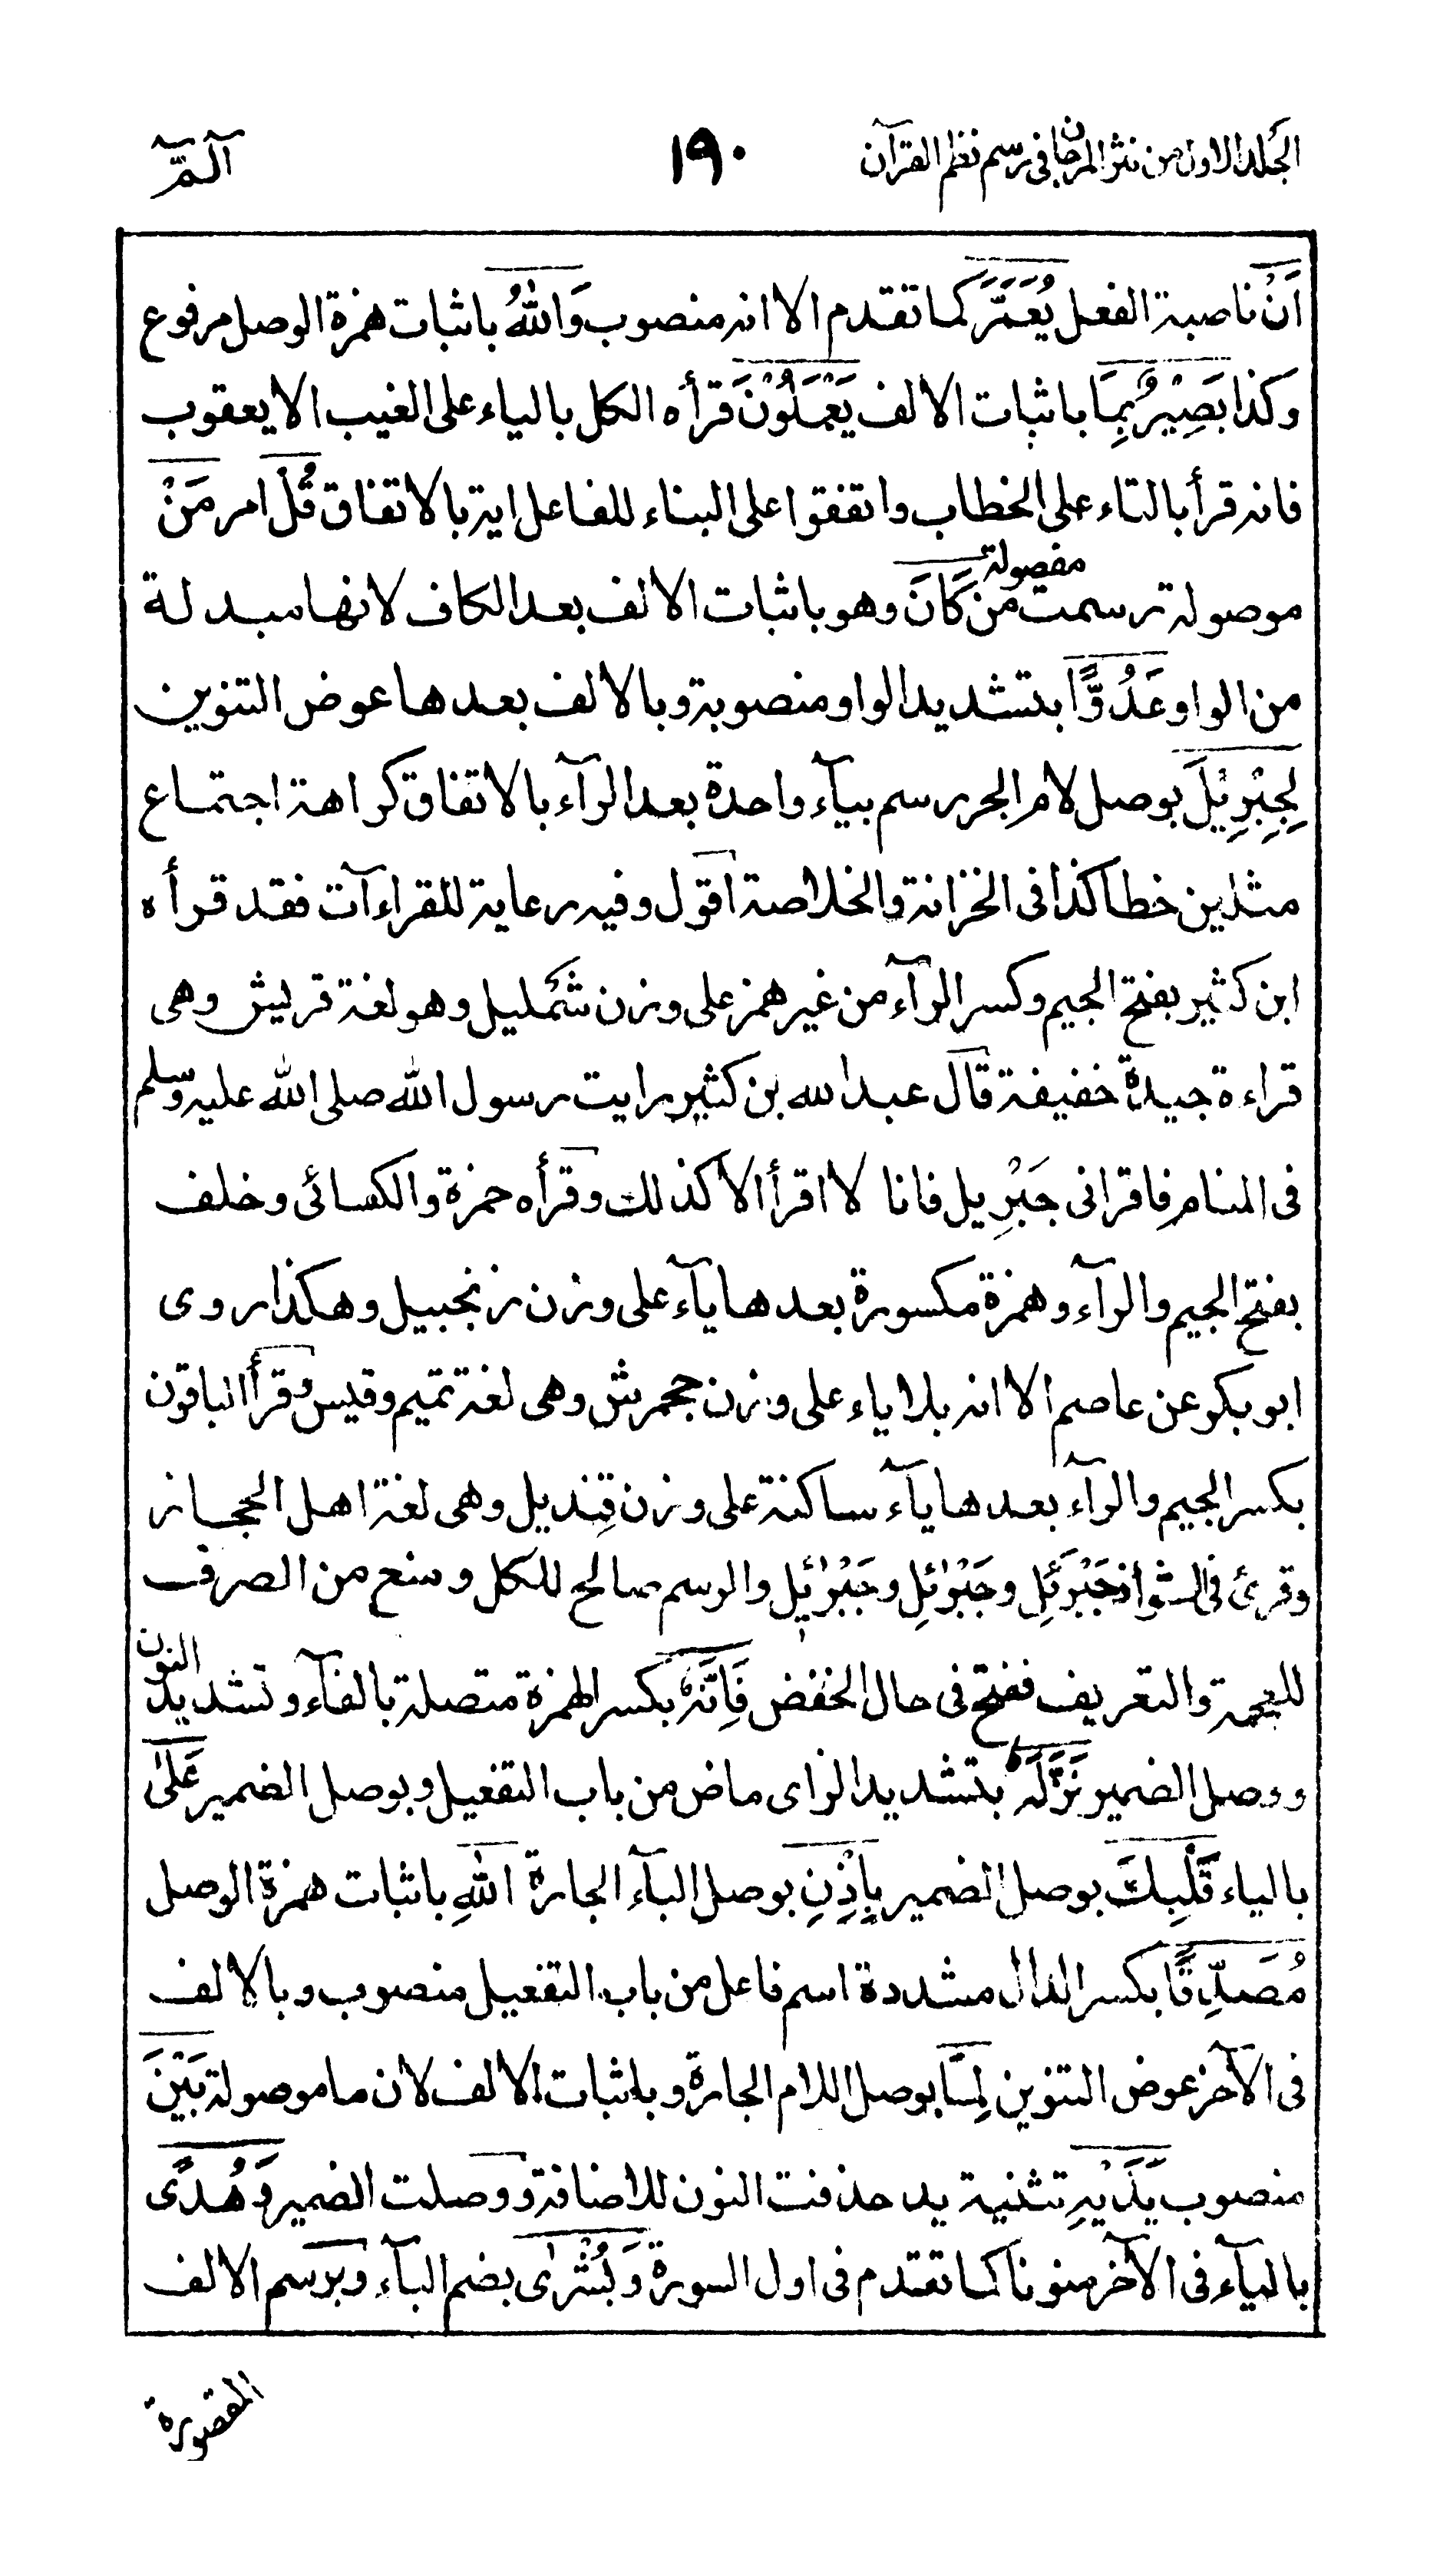 الجلد الاول من نثر المرجان فى رسم نظم القرآن
١٩٠
الٓمّٓ
اَنْ ناصبة الفعل يُعَمَّرَ كما تقدم الا انه منصوب وَاللهُ باثبات همزة الوصل مرفوع
وكذا بَصِيْرٌ بِمَا باثبات الالف يَعْمَلُوْنَ قرأه الكل بالياء على الغيب الا يعقوب
فانه قرأ بالتاء على الخطاب واتفقوا على البناء للفاعل اية بالاتفاق قُلْ امر مَنْ
موصولة رسمت مفصولة من كَانَ وهو باثبات الالف بعد الكاف لانها مبدلة
من الواو عَدُوًّا بتشديد الواو منصوبة وبالالف بعدها عوض التنوين
لِجِبْرِيْلَ بوصل لام الجر رسم بيآء واحدة بعد الرآء بالاتفاق كراهة اجتماع
مثلين خطا كذا فى الخزانة والخلاصة اقول وفيه رعاية للقراءآت فقد قرأه
ابن كثير بفتح الجيم وكسر الرآء من غير همز على وزن شَمليل وهو لغة قريش وهى
قراءة جيدة خفيفة قال عبد الله بن كثير رايت رسول الله صلى الله عليه وسلم
فى المنام فاقرانى جَبْرِيل فانا لا اقرأ الا كذلك وقرأه حمزة والكسائى وخلف
بفتح الجيم والرآء وهمزة مكسورة بعدها يآء على وزن زنجبيل وهكذا روى
ابو بكر عن عاصم الا انه بلا ياء على وزن جحمرش وهى لغة تميم وقيس وقرأ الباقون
بكسر الجيم والرآء بعدها يآء ساكنة على وزن قِنديل وهى لغة اهل الحجاز
وقرئ فى الشواذ جَبْرَئِل وجَبْرٰئِل وجَبْرٰئيل والرسم صالح للكل ومنع من الصرف
للعجمة والتعريف ففتح فى حال الخفض فَاِنَّهٗ بكسر الهمزة متصلة بالفآء وتشديد النون
ووصل الضمير نَزَّلَهٗ بتشديد الزاى ماض من باب التفعيل وبوصل الضمير عَلٰى
بالياء قَلْبِكَ بوصل الضمير بِاِذْنِ بوصل البآء الجارة اللهِ باثبات همزة الوصل
مُصَدِّقًا بكسر الدال مشددة اسم فاعل من باب التفعيل منصوب وبالالف
فى الآخر عوض التنوين لِمَا بوصل اللام الجارة وباثبات الالف لان ما موصولة بَيْنَ
منصوب يَدَيْهِ تثنية يد حذفت النون للاضافة ووصلت الضمير وَهُدًى
باليآء فى الآخر منونا كما تقدم فى اول السورة وَبُشْرٰى بضم البآء وبرسم الالف
المقصورة